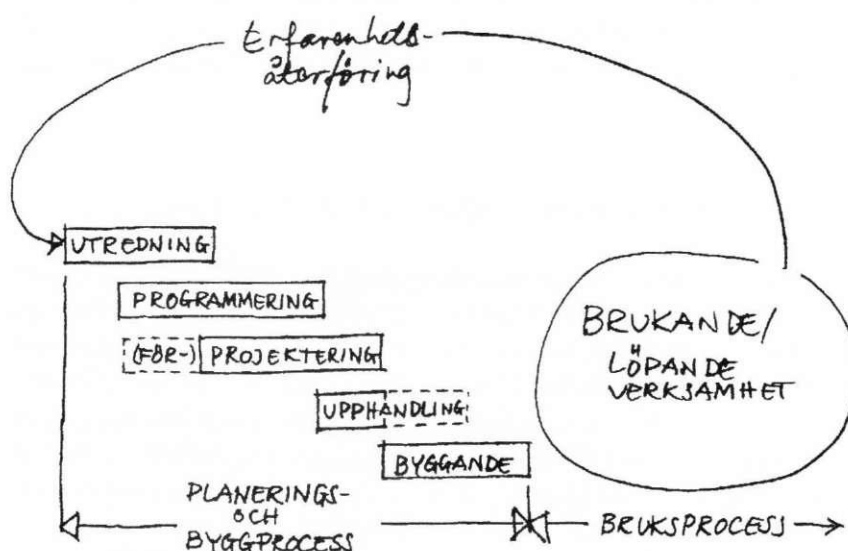 Erfarenhets-
återföring
UTREDNING
PROGRAMMERING
(FÖR-) PROJEKTERING
UPPHANDLING
BYGGANDE
BRUKANDE/
LÖPANDE
VERKSAMHET
PLANERINGS-
OCH
BYGGPROCESS
BRUKSPROCESS